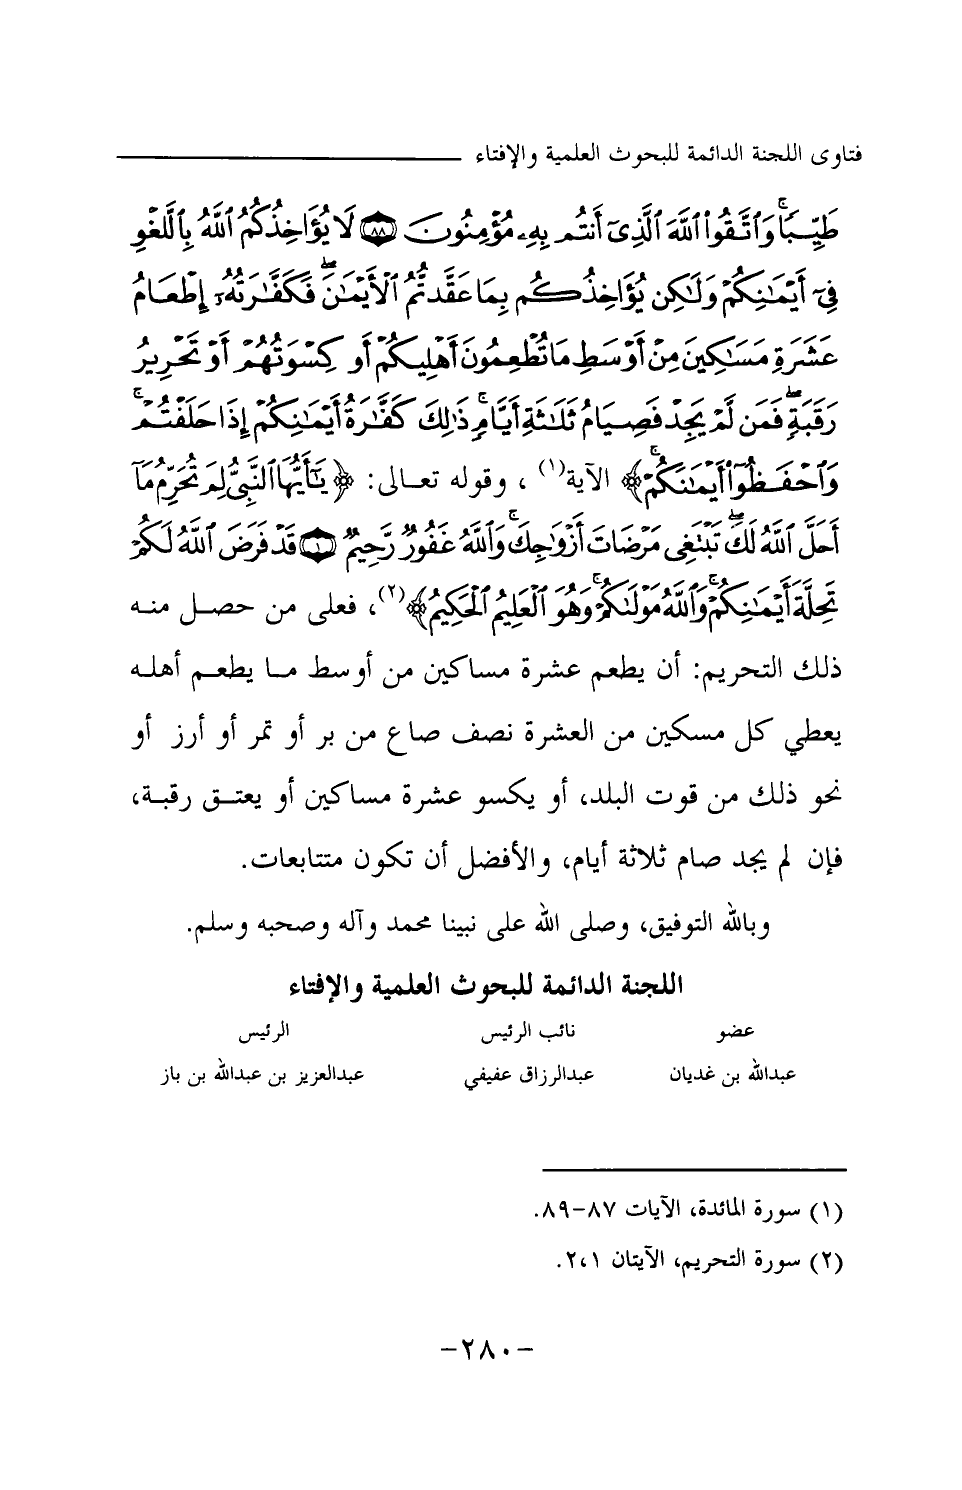 فتاوى اللجنة الدائمة للبحوث العلمية والإفتاء
طَيِّبًا وَاتَّقُوا اللَّهَ الَّذِي أَنتُم بِهِ مُؤْمِنُونَ ﴿٨٨﴾ لَا يُؤَاخِذُكُمُ اللَّهُ بِاللَّغْوِ
فِي أَيْمَانِكُمْ وَلَٰكِن يُؤَاخِذُكُم بِمَا عَقَّدتُّمُ الْأَيْمَانَ ۖ فَكَفَّارَتُهُ إِطْعَامُ
عَشَرَةِ مَسَاكِينَ مِنْ أَوْسَطِ مَا تُطْعِمُونَ أَهْلِيكُمْ أَوْ كِسْوَتُهُمْ أَوْ تَحْرِيرُ
رَقَبَةٍ ۖ فَمَن لَّمْ يَجِدْ فَصِيَامُ ثَلَاثَةِ أَيَّامٍ ۚ ذَٰلِكَ كَفَّارَةُ أَيْمَانِكُمْ إِذَا حَلَفْتُمْ ۚ
وَاحْفَظُوا أَيْمَانَكُمْ ۚ﴾ الآية(١)، وقوله تعالى: ﴿يَا أَيُّهَا النَّبِيُّ لِمَ تُحَرِّمُ مَا
أَحَلَّ اللَّهُ لَكَ ۖ تَبْتَغِي مَرْضَاتَ أَزْوَاجِكَ ۚ وَاللَّهُ غَفُورٌ رَّحِيمٌ ﴿١﴾ قَدْ فَرَضَ اللَّهُ لَكُمْ
تَحِلَّةَ أَيْمَانِكُمْ ۚ وَاللَّهُ مَوْلَاكُمْ ۖ وَهُوَ الْعَلِيمُ الْحَكِيمُ﴾(٢)، فعلى من حصل منه
ذلك التحريم: أن يطعم عشرة مساكين من أوسط ما يطعم أهله
يعطي كل مسكين من العشرة نصف صاع من بر أو تمر أو أرز أو
نحو ذلك من قوت البلد، أو يكسو عشرة مساكين أو يعتق رقبة،
فإن لم يجد صام ثلاثة أيام، والأفضل أن تكون متتابعات.
وبالله التوفيق، وصلى الله على نبينا محمد وآله وصحبه وسلم.
اللجنة الدائمة للبحوث العلمية والإفتاء
عضو نائب الرئيس الرئيس
عبدالله بن غديان عبدالرزاق عفيفي عبدالعزيز بن عبدالله بن باز
(١) سورة المائدة، الآيات ٨٧-٨٩.
(٢) سورة التحريم، الآيتان ٢،١.
-٢٨٠-